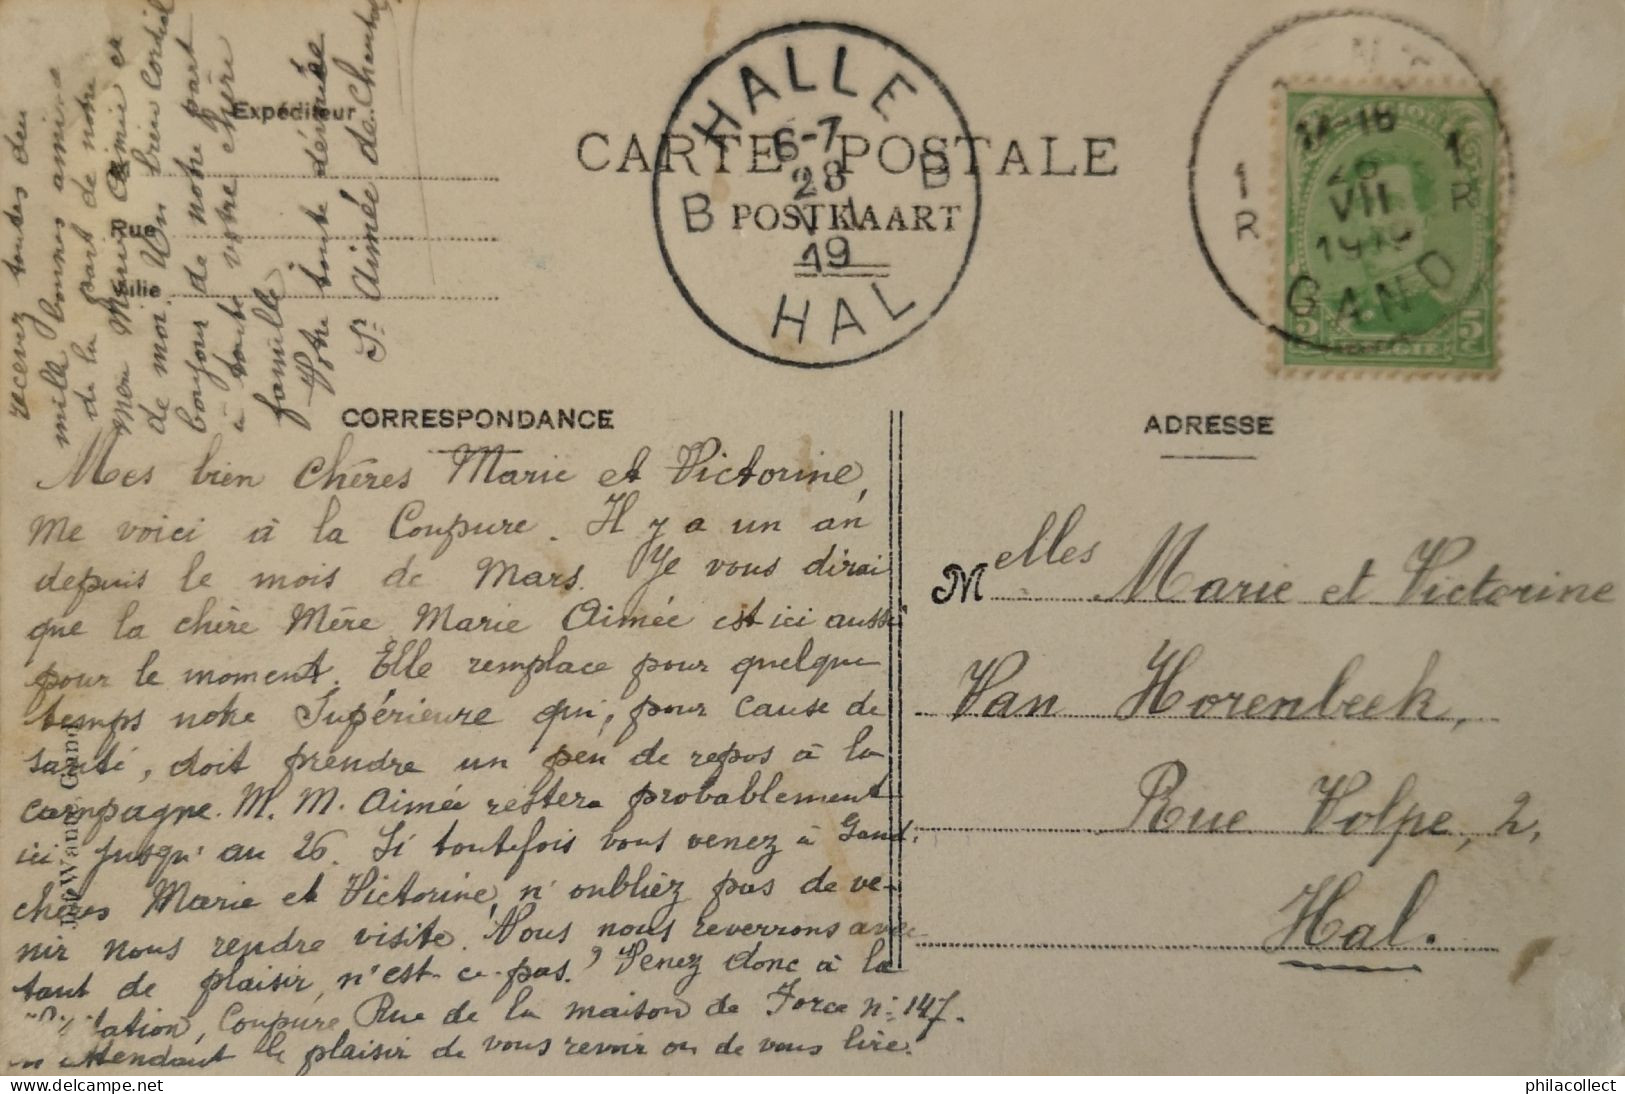 Expéditeur
Rue
CARTE POSTALE
POSTKAART
HALLE
6-7
28
19
B B
HAL
14-16
VII
1919
1 R
1 R
GAND
5 5
CORRESPONDANCE
ADRESSE
Mes bien chères Marie et Victorine,
me voici à la Coupure. Il y a un an
depuis le mois de Mars. Je vous dirai
que la chère Mère Marie Aimée est ici aussi
pour le moment. Elle remplace pour quelque
temps notre Supérieure qui, pour cause de
santé, doit prendre un peu de repos à la
campagne. M. M. Aimée restera probablement
ici jusqu'au 26. Si toutefois vous venez à Gand,
chères Marie et Victorine, n'oubliez pas de ve-
nir nous rendre visite. Nous nous reverrons avec
tant de plaisir, n'est-ce-pas? Venez donc à la
Coupure Rue de la maison de Force n: 147.
en attendant le plaisir de vous revoir ou de vous lire.
recevez toutes deux
mille bonnes amitiés
de la part de notre
Mère Marie Aimée et
de moi. Un bien cordial
bonjour de notre part
à toute votre chère
famille
Votre toute dévouée
Sr Aimée de Chantal
Melles Marie et Victorine
Van Horenbeek,
Rue Volpe, 2,
Hal.
philacollect